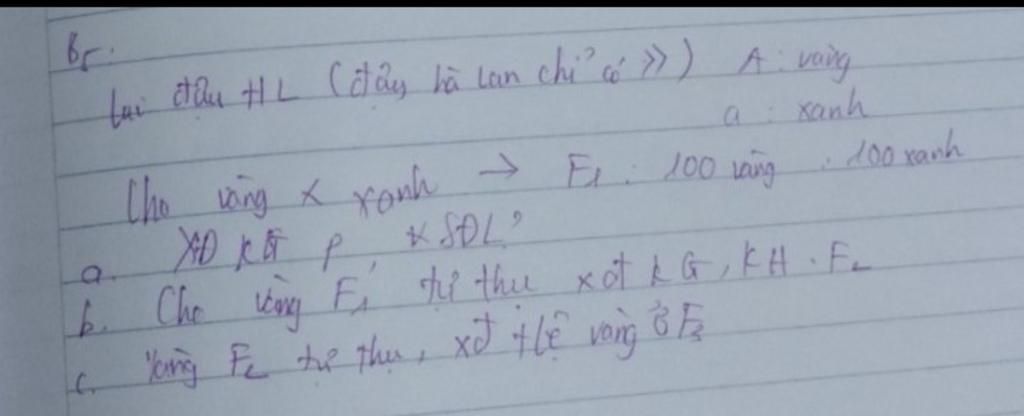 B5:
Lai đậu HL (đây hà lan chỉ có >>) A: vàng
a: xanh
Cho vàng x xanh → F1: 100 vàng : 100 xanh
a. XĐ KG P, x SĐL?
b. Cho vàng F1 tự thụ xđ KG, KH. F2
c. Vàng F2 tự thụ, xđ tlệ vàng ở F3